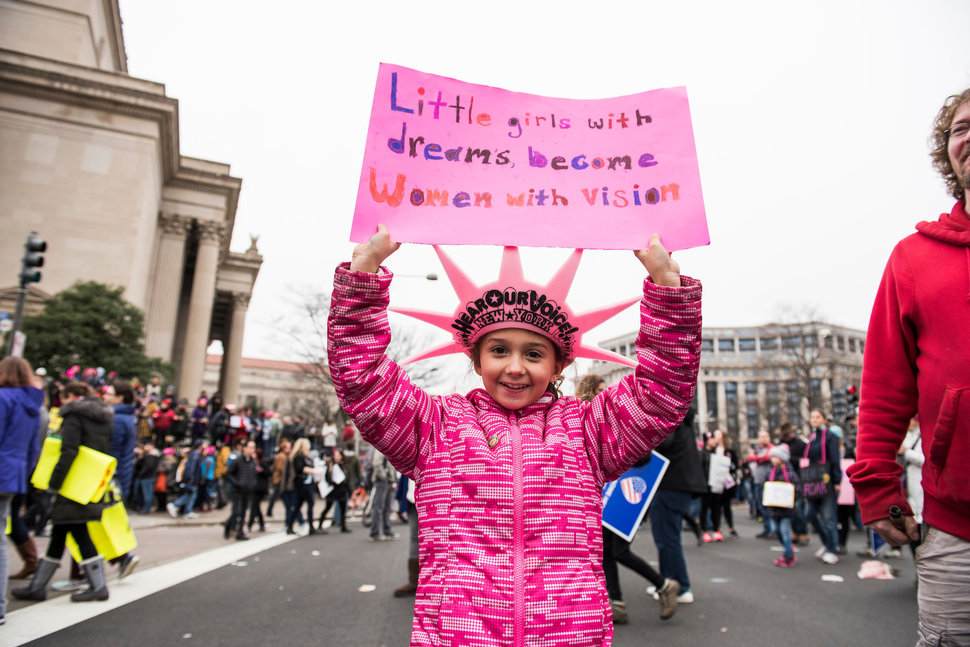 Little girls with
dreams, become
Women with Vision
HEAR OUR VOICE!
NEW★YORK